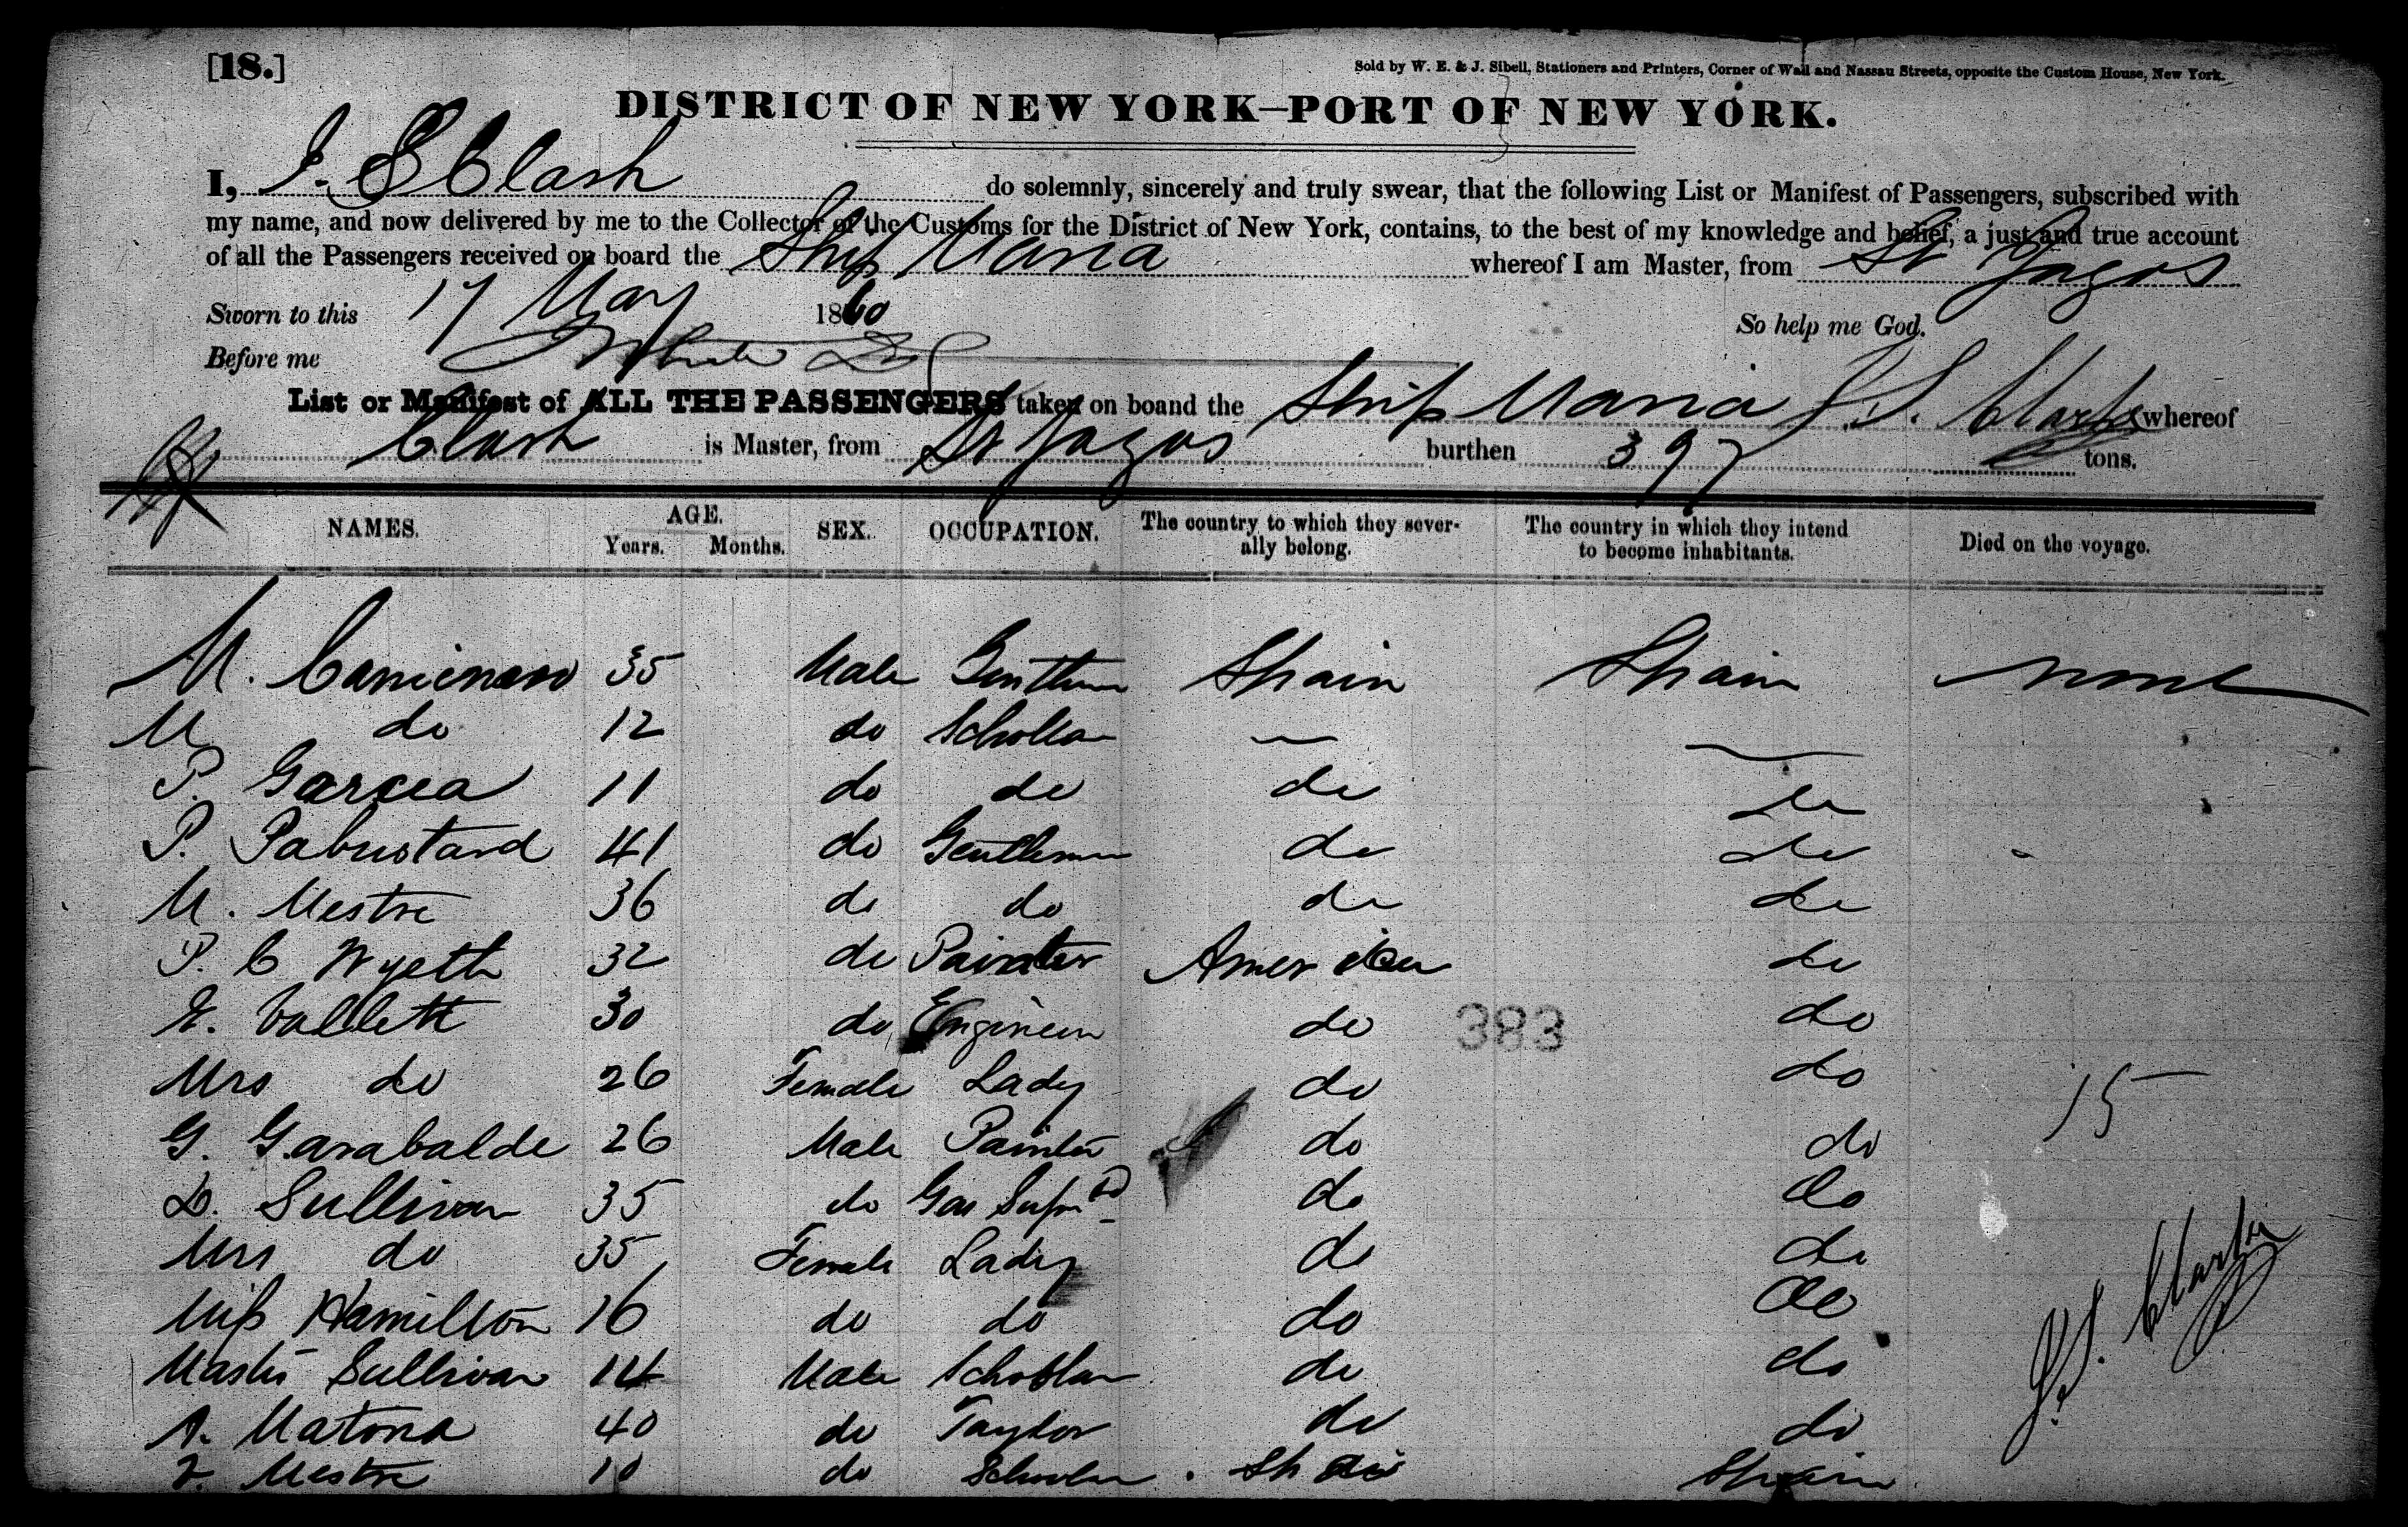 [18.]
Sold by W. E. & J. Sibell, Stationers and Printers, Corner of Wall and Nassau Streets, opposite the Custom House, New York.
DISTRICT OF NEW YORK—PORT OF NEW YORK.
I, J. S Clark do solemnly, sincerely and truly swear, that the following List or Manifest of Passengers, subscribed with
my name, and now delivered by me to the Collector of the Customs for the District of New York, contains, to the best of my knowledge and belief, a just and true account
of all the Passengers received on board the Ship Maria whereof I am Master, from St Jagos
Sworn to this 17 May 1860 So help me God.
Before me
List or Manifest of ALL THE PASSENGERS taken on board the Ship Maria J. S. Clark whereof
Clark is Master, from St Jagos burthen 397 tons.
NAMES. AGE. Years. Months. SEX. OCCUPATION. The country to which they severally belong. The country in which they intend to become inhabitants. Died on the voyage.
M. 35 Male Gentlem Spain Spain none
M do 12 do Schollar
P. Garcea 11 do do do do
P. Pabustard 41 do Gentleman do do
M. Mestre 36 do do do do
P. C Wyeth 32 do Painter America do
E. Vallett 30 do Engineer do do
383
Mrs do 26 Female Lady do do
15
G. Garabalde 26 Male Painter do do
D. Sullivan 35 do Gas do do
Mrs do 35 Female Lady do do
Miss Hamilton 16 do do do do
Master Sullivan 14 Male Schollar do do
A. Matona 40 do Taylor do do
Mestre 10 do Scholar Spain Spain
J. S. Clark